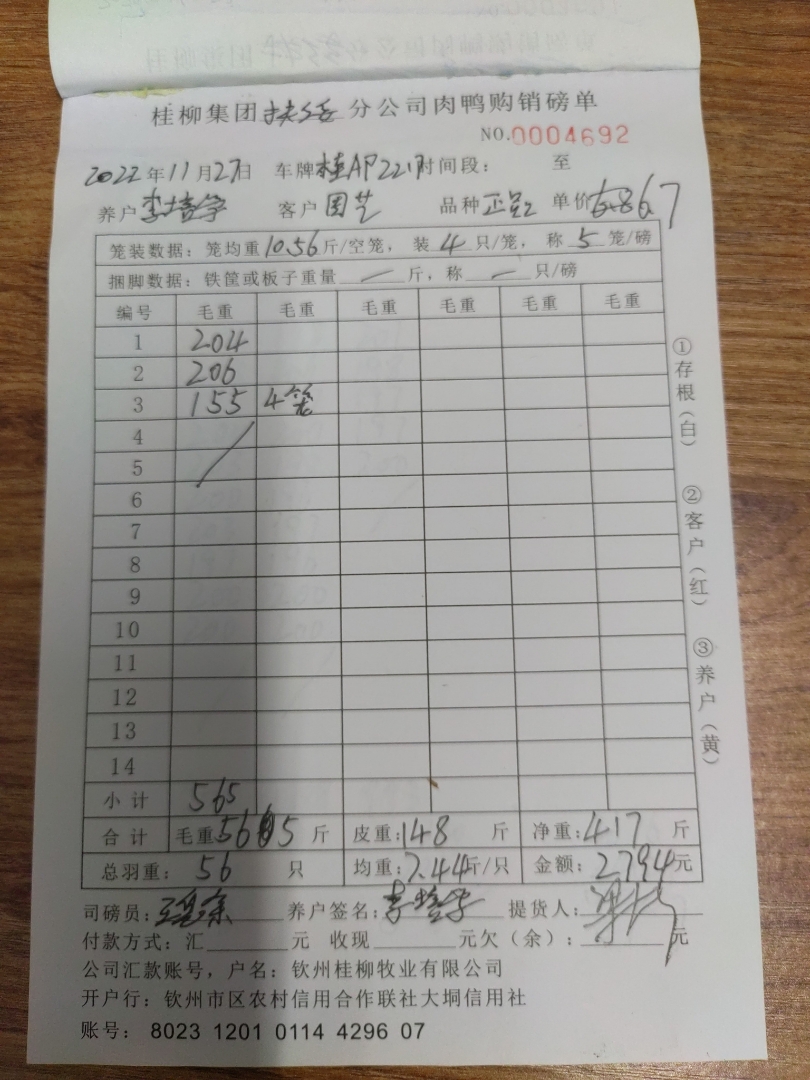 桂柳集团扶绥分公司肉鸭购销磅单
NO.0004692
2022年11月27日 车牌桂AP22 时间段： 至
养户 李培 客户 园艺 品种 单价 6.7
笼装数据：笼均重10.56斤/空笼，装4只/笼，称5笼/磅
捆脚数据：铁筐或板子重量 — 斤，称 — 只/磅
编号 毛重 毛重 毛重 毛重 毛重 毛重
1 204
2 206
3 155 4笼
4
5
6
7
8
9
10
11
12
13
14
小计 565
合计 毛重565斤 皮重：148 斤 净重：417 斤
总羽重：56 只 均重：7.44斤/只 金额：2794元
司磅员： 养户签名：李培 提货人：
付款方式：汇 元 收现 元欠（余）： 元
公司汇款账号，户名：钦州桂柳牧业有限公司
开户行：钦州市区农村信用合作联社大垌信用社
账号： 8023 1201 0114 4296 07
①存根（白）
②客户（红）
③养户（黄）